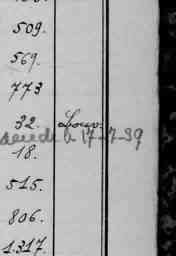 509.
569.
773
32. Louv.
décédé à 17-7-39
18.
515.
806.
1.317.